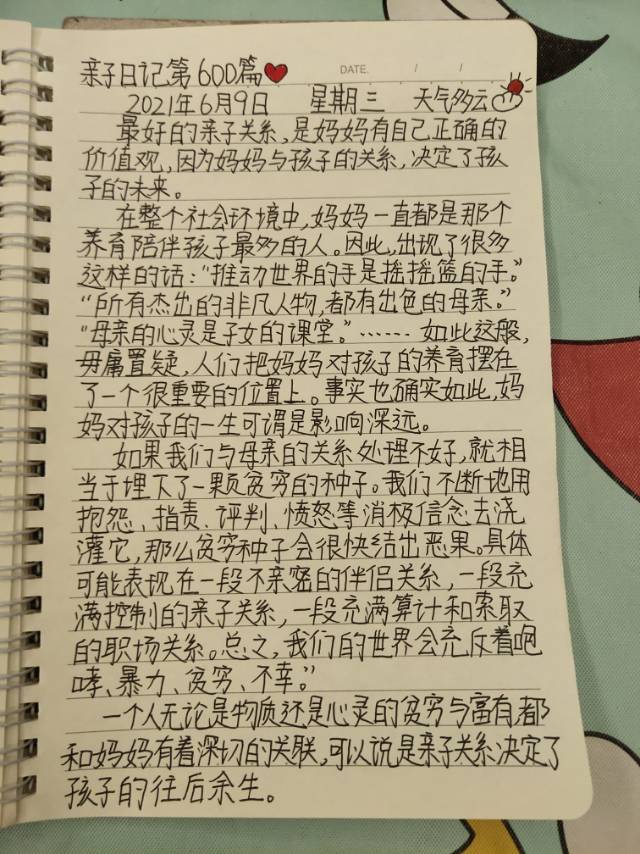 亲子日记第600篇
DATE. / /
2021年6月9日 星期三 天气多云
最好的亲子关系,是妈妈有自己正确的
价值观,因为妈妈与孩子的关系,决定了孩
子的未来。
在整个社会环境中,妈妈一直都是那个
养育陪伴孩子最多的人。因此,出现了很多
这样的话:“推动世界的手是摇摇篮的手。”
“所有杰出的非凡人物,都有出色的母亲。”
“母亲的心灵是子女的课堂。”…… 如此这般,
毋庸置疑,人们把妈妈对孩子的养育摆在
了一个很重要的位置上。事实也确实如此,妈
妈对孩子的一生可谓是影响深远。
如果我们与母亲的关系处理不好,就相
当于埋下了一颗贫穷的种子。我们不断地用
抱怨、指责、评判、愤怒等消极信念去浇
灌它,那么贫穷种子会很快结出恶果。具体
可能表现在一段不亲密的伴侣关系,一段充
满控制的亲子关系,一段充满算计和索取
的职场关系。总之,我们的世界会充斥着咆
哮、暴力、贫穷、不幸。”
一个人无论是物质还是心灵的贫穷与富有,都
和妈妈有着深切的关联,可以说是亲子关系决定了
孩子的往后余生。